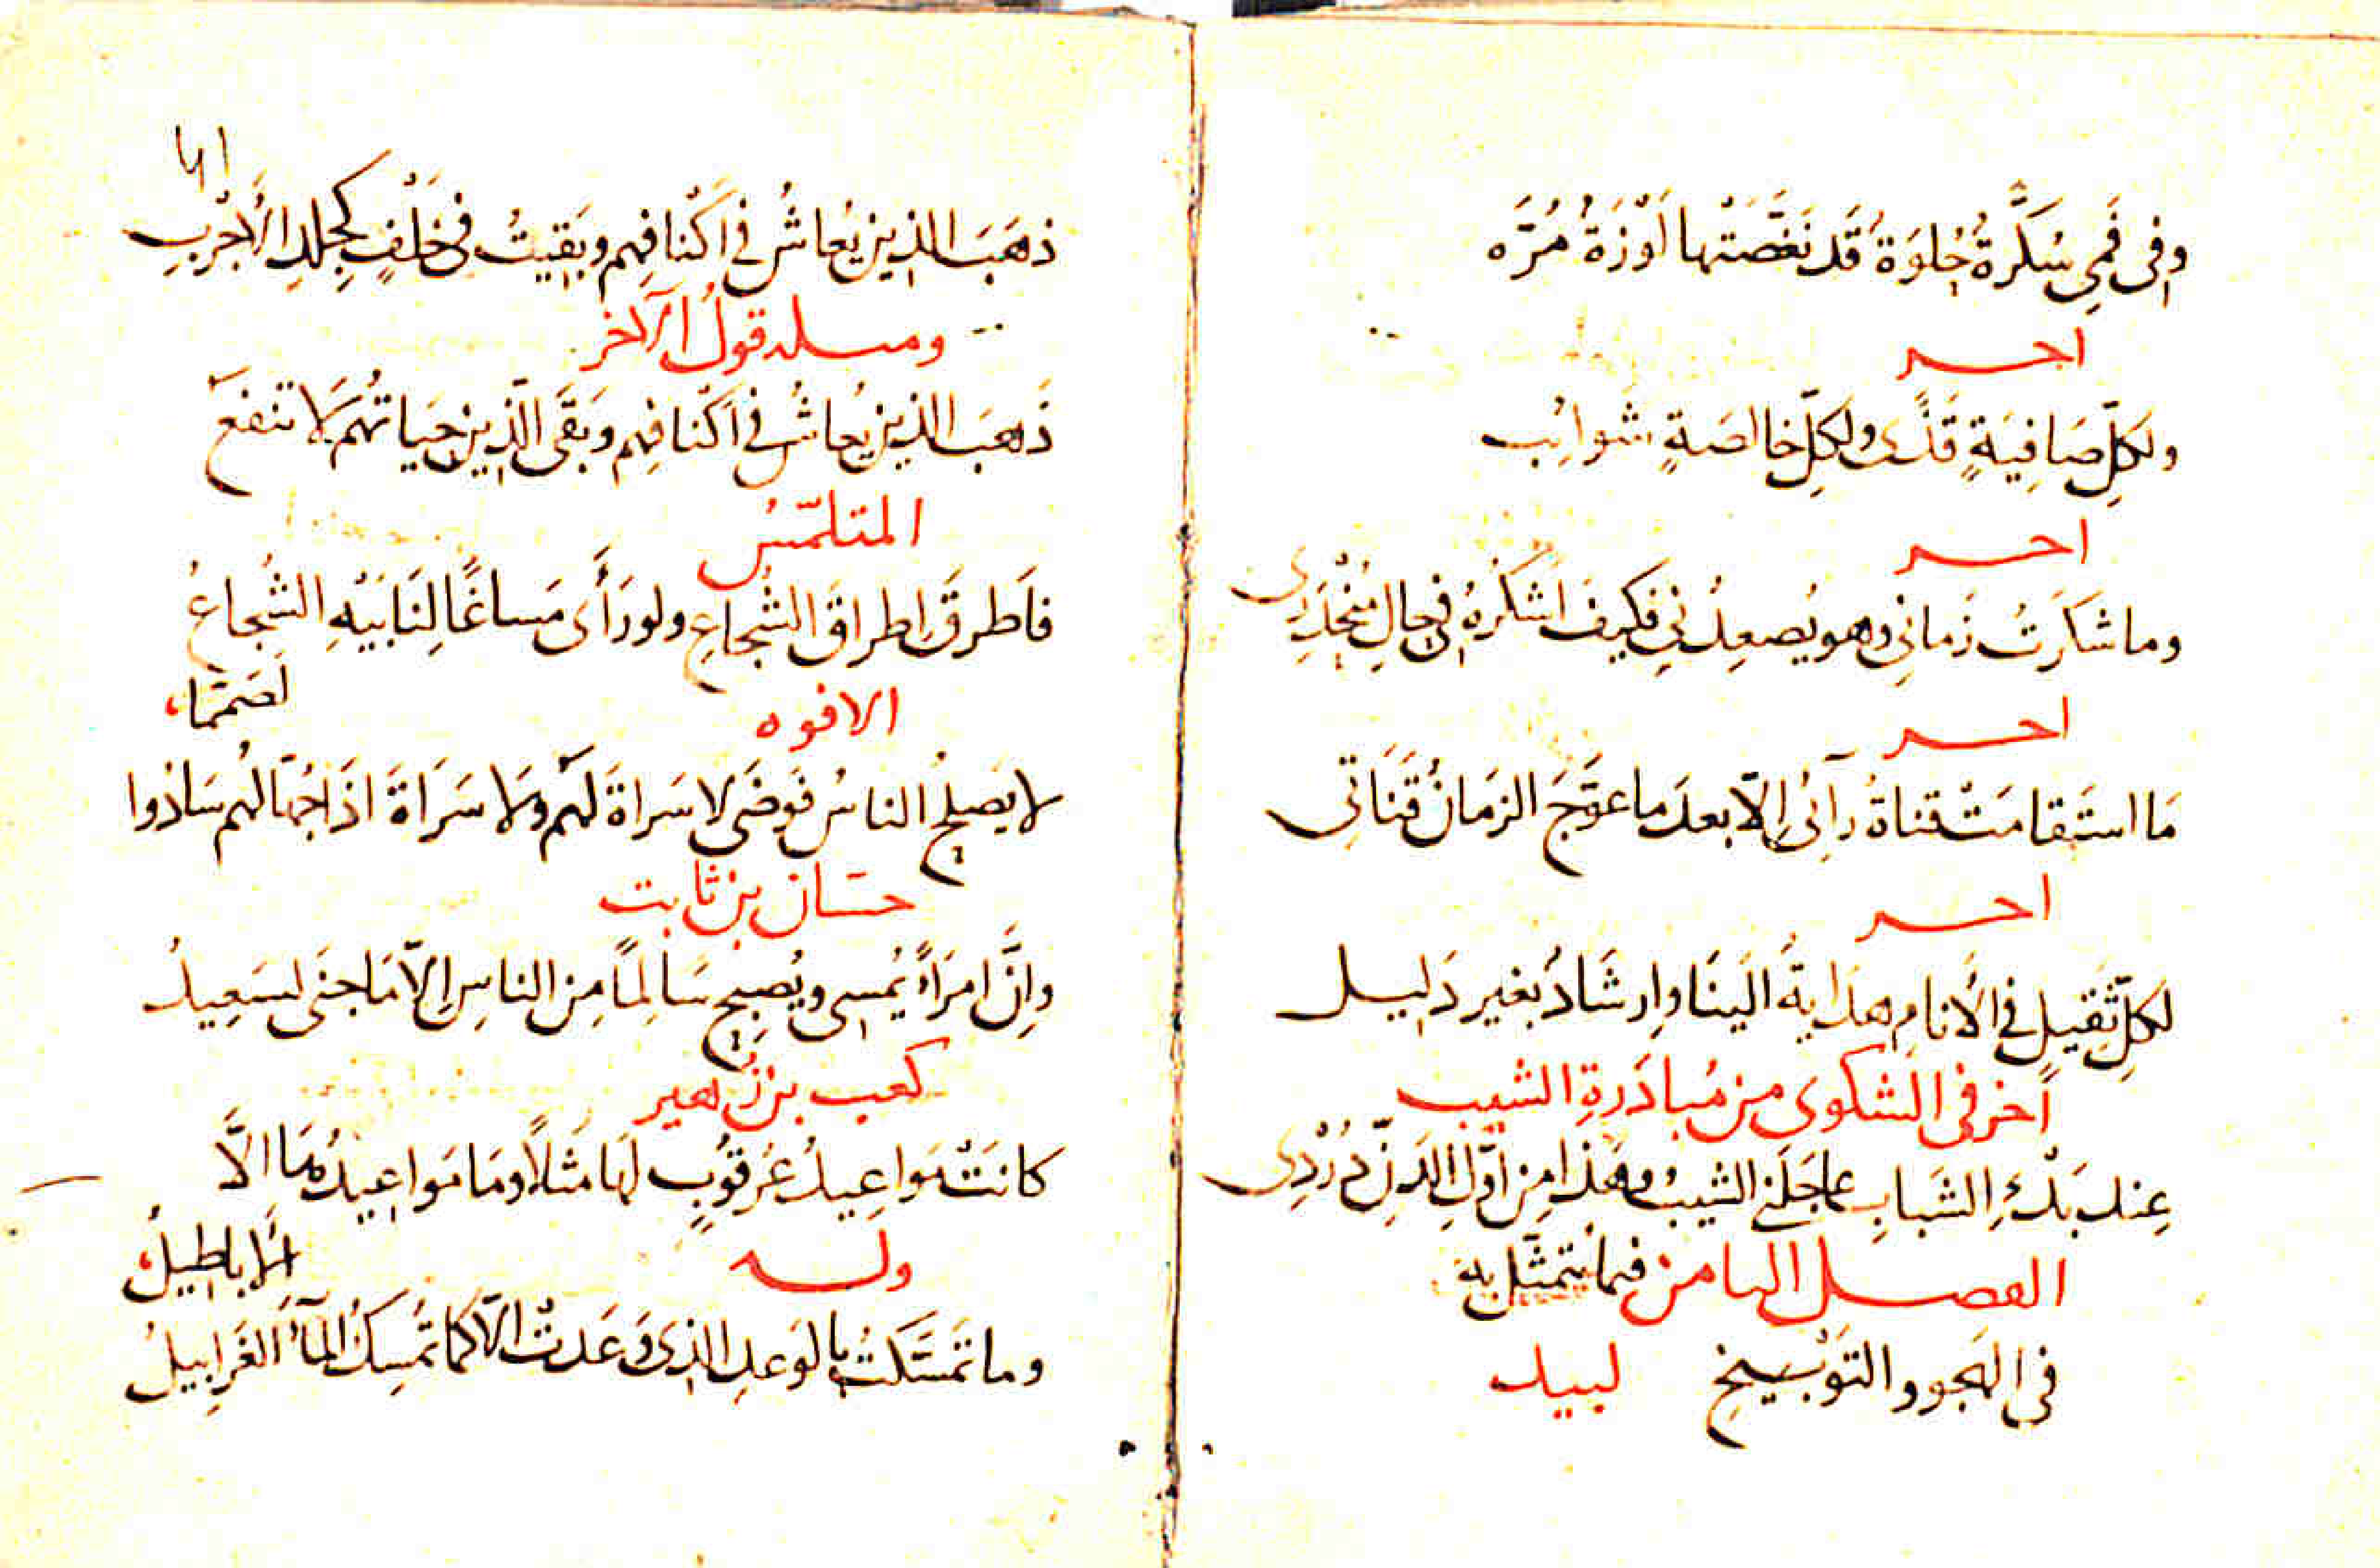 وفى فَمِى سُكَّرةٌ حُلوَةٌ قَد نَغَّصَتْها اَوْزَةٌ مُرَّه
اخر
ولكلِّ صَافِيَةٍ قَذًى ولكلِّ خالصَةٍ شوائب
اخر
وما شكَرتُ زَمانى وهو يُصعِدُنى فكيفَ اَشكرُهُ فى حالِ مُنْحَدَرِى
اخر
مَا استَقامَتْ قناةُ رآئى اِلّا بعدَ ما عوَّجَ الزمَانُ قَنَاتى
اخر
لكلِّ ثَقيلٍ فى الأنامِ هدَايةٌ الَينَا وارشَادٌ بغير دَليل
آخر فى الشكوى من مُبادَرةِ الشيب
عِند بَدْءِ الشَبابِ عاجَلَنى الشيبُ وهَذا مِن اوّلِ الدَنِّ دُرْدِى
الفصل الثامن فيما يُتمثَّل بِه
فى الهجو والتوبيخ لبيد
٦١
ذهَبَ الذين يُعاشُ فى اَكنافِهم وبَقيتُ فى خَلْفٍ كجِلدِ الأجْربِ
ومثله قولُ الآخر
ذَهبَ الذين يُعاشُ فى اَكنافِهم وبَقَى الَّذين حيَاتُهُم لَا تنفعُ
المتلمّسُ
فاَطرقَ اطراقَ الشُجاعِ ولو رَأَى مَساغًا لِنَابَيْهِ الشُجاعُ
لَصَمَّمَا
الافوه
لا يَصلحُ الناسُ فَوضَى لا سَراةَ لهُم ولَا سَرَاةَ اذَا جُهّالُهُم سَادُوا
حسّان بن ثابت
وانَّ امرَاءً يُمسى ويُصبِح سَالِمًا مِن الناسِ اِلّا مَا جنَى لسَعِيدُ
كعب بن زهير
كانَتْ مَواعِيدُ عُرقُوبٍ لهَا مثَلًا ومَا مَواعِيدُهَا الَّا
الأباطِيلُ
وله
وما تَمسَّكَتْ بالوَعدِ الذى وَعَدتْ الّا كما تُمسِكُ المآءَ الغَرابيلُ